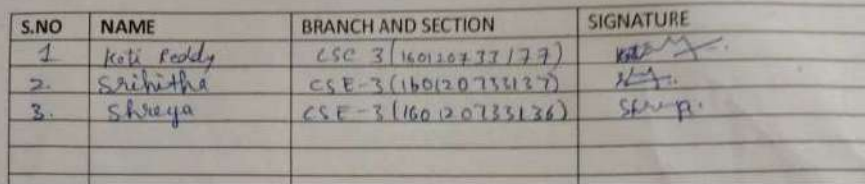 S.NO NAME BRANCH AND SECTION SIGNATURE
1 Koti Reddy CSC 3(160120733177)
2. Srihitha CSE-3(160120733137)
3. Shreya CSE-3(160120733136) Shreya.